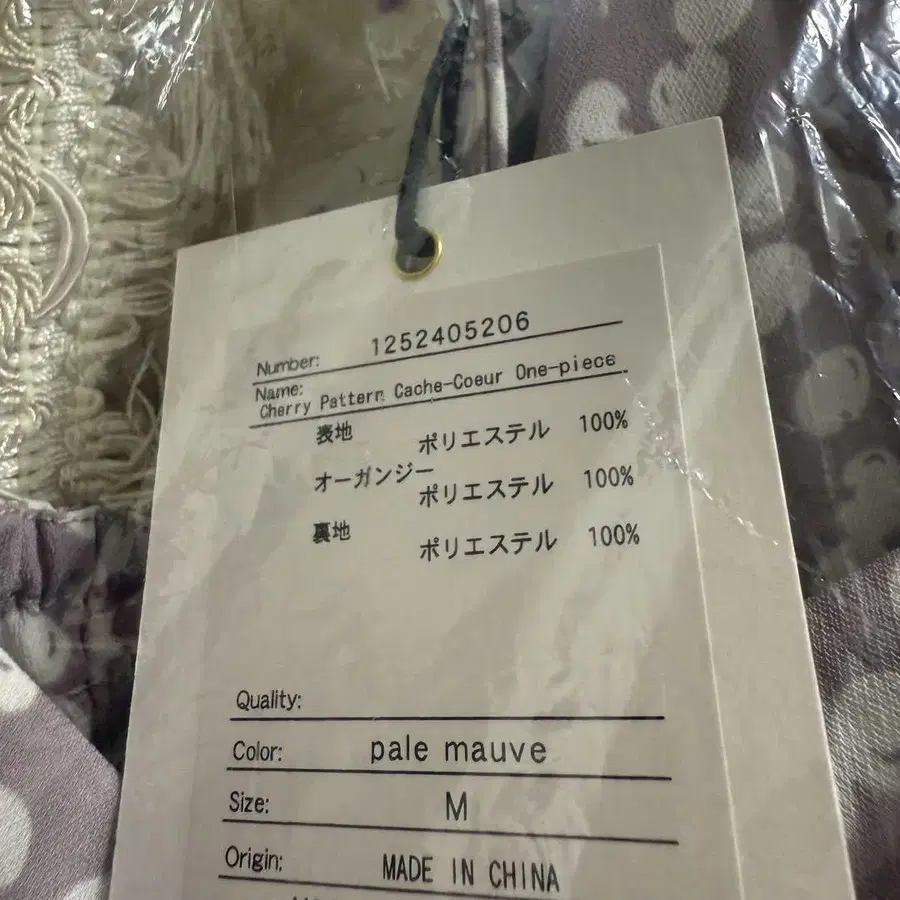 Number: 1252405206
Name:
Cherry Pattern Cache-Coeur One-piece
表地 ポリエステル 100%
オーガンジー ポリエステル 100%
裏地 ポリエステル 100%
Quality:
Color: pale mauve
Size: M
Origin: MADE IN CHINA